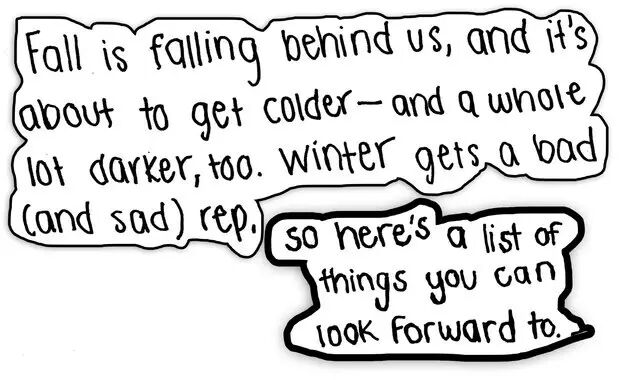 Fall is falling behind us, and it's
about to get colder—and a whole
lot darker, too. Winter gets a bad
(and sad) rep.
so here's a list of
things you can
look forward to.